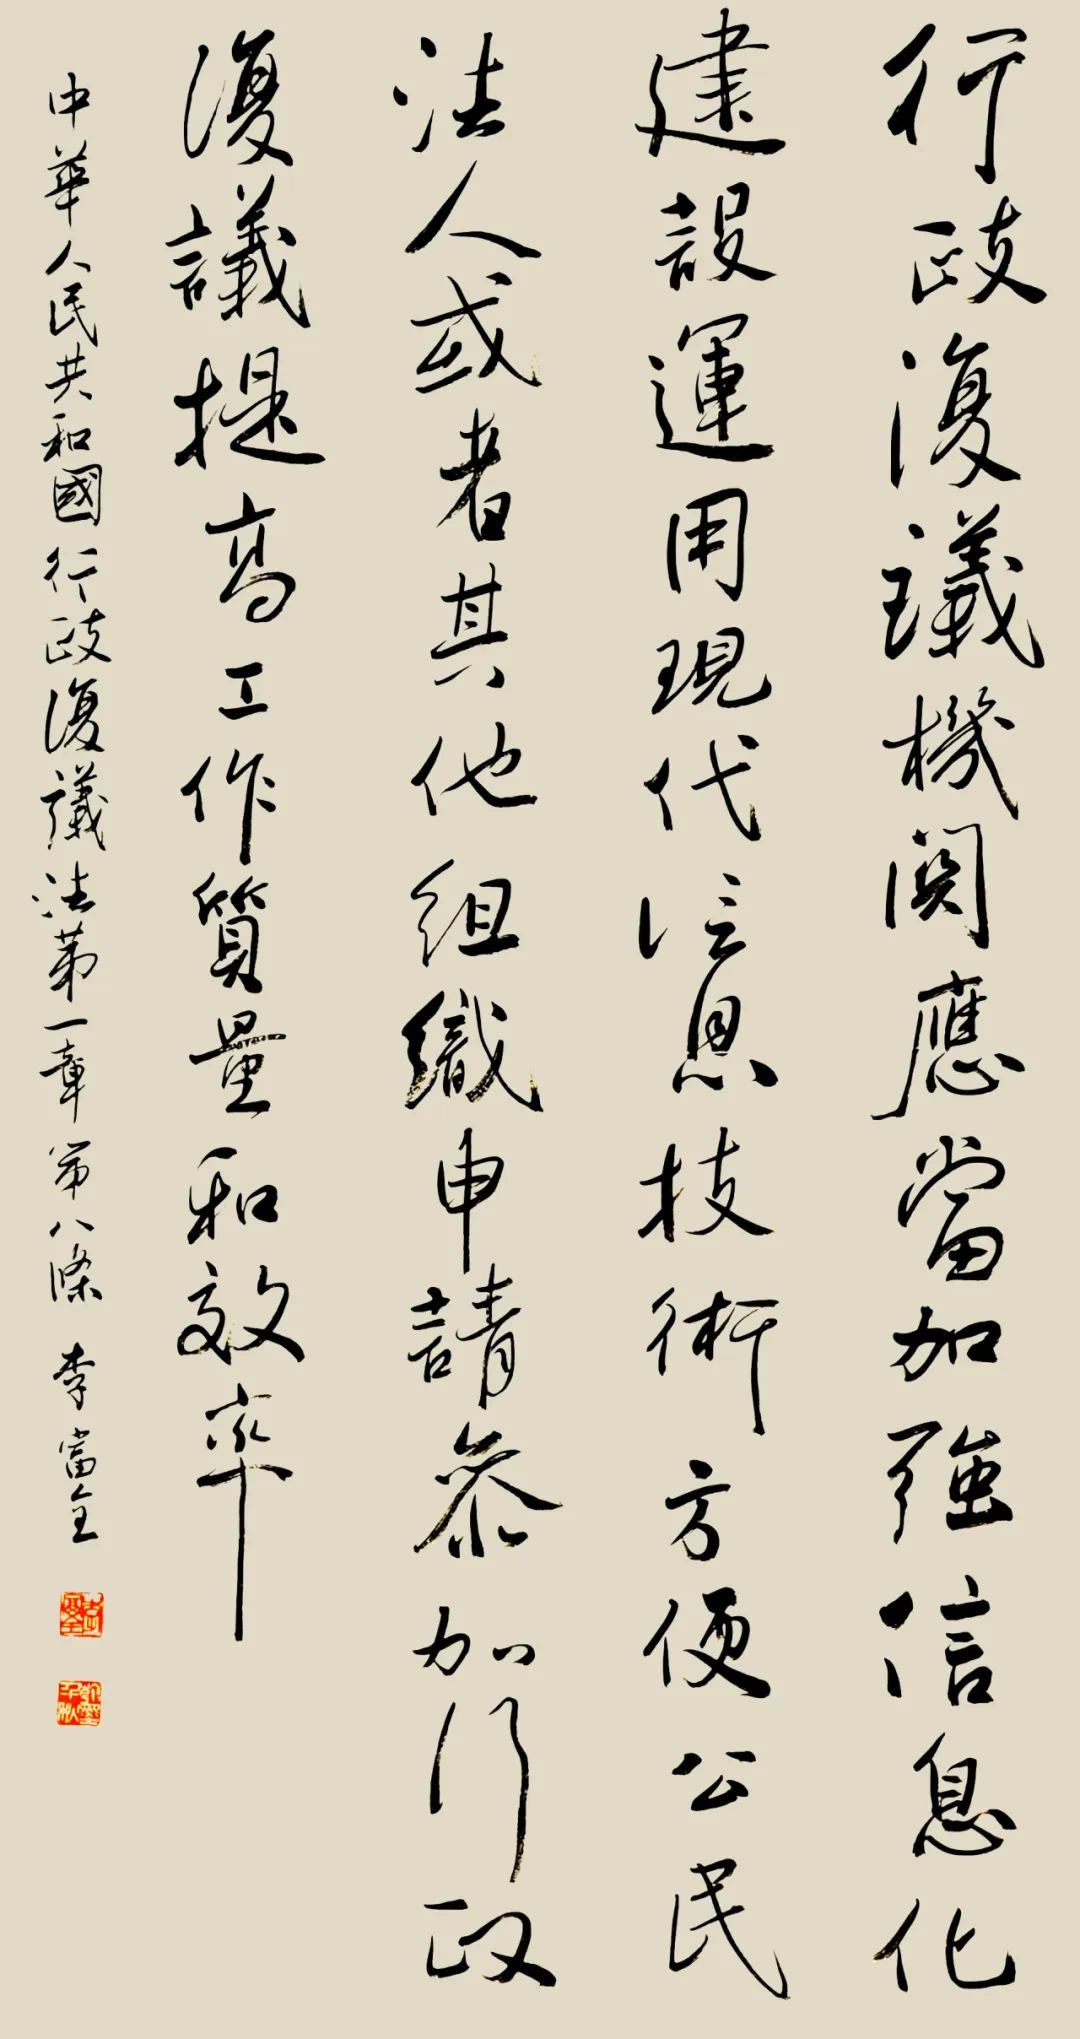 行政復議機関應當加強信息化
建設運用現代信息技術方便公民
法人或者其他組織申請參加行政
復議提高工作質量和效率
中華人民共和國行政復議法第一章第八條 李富全